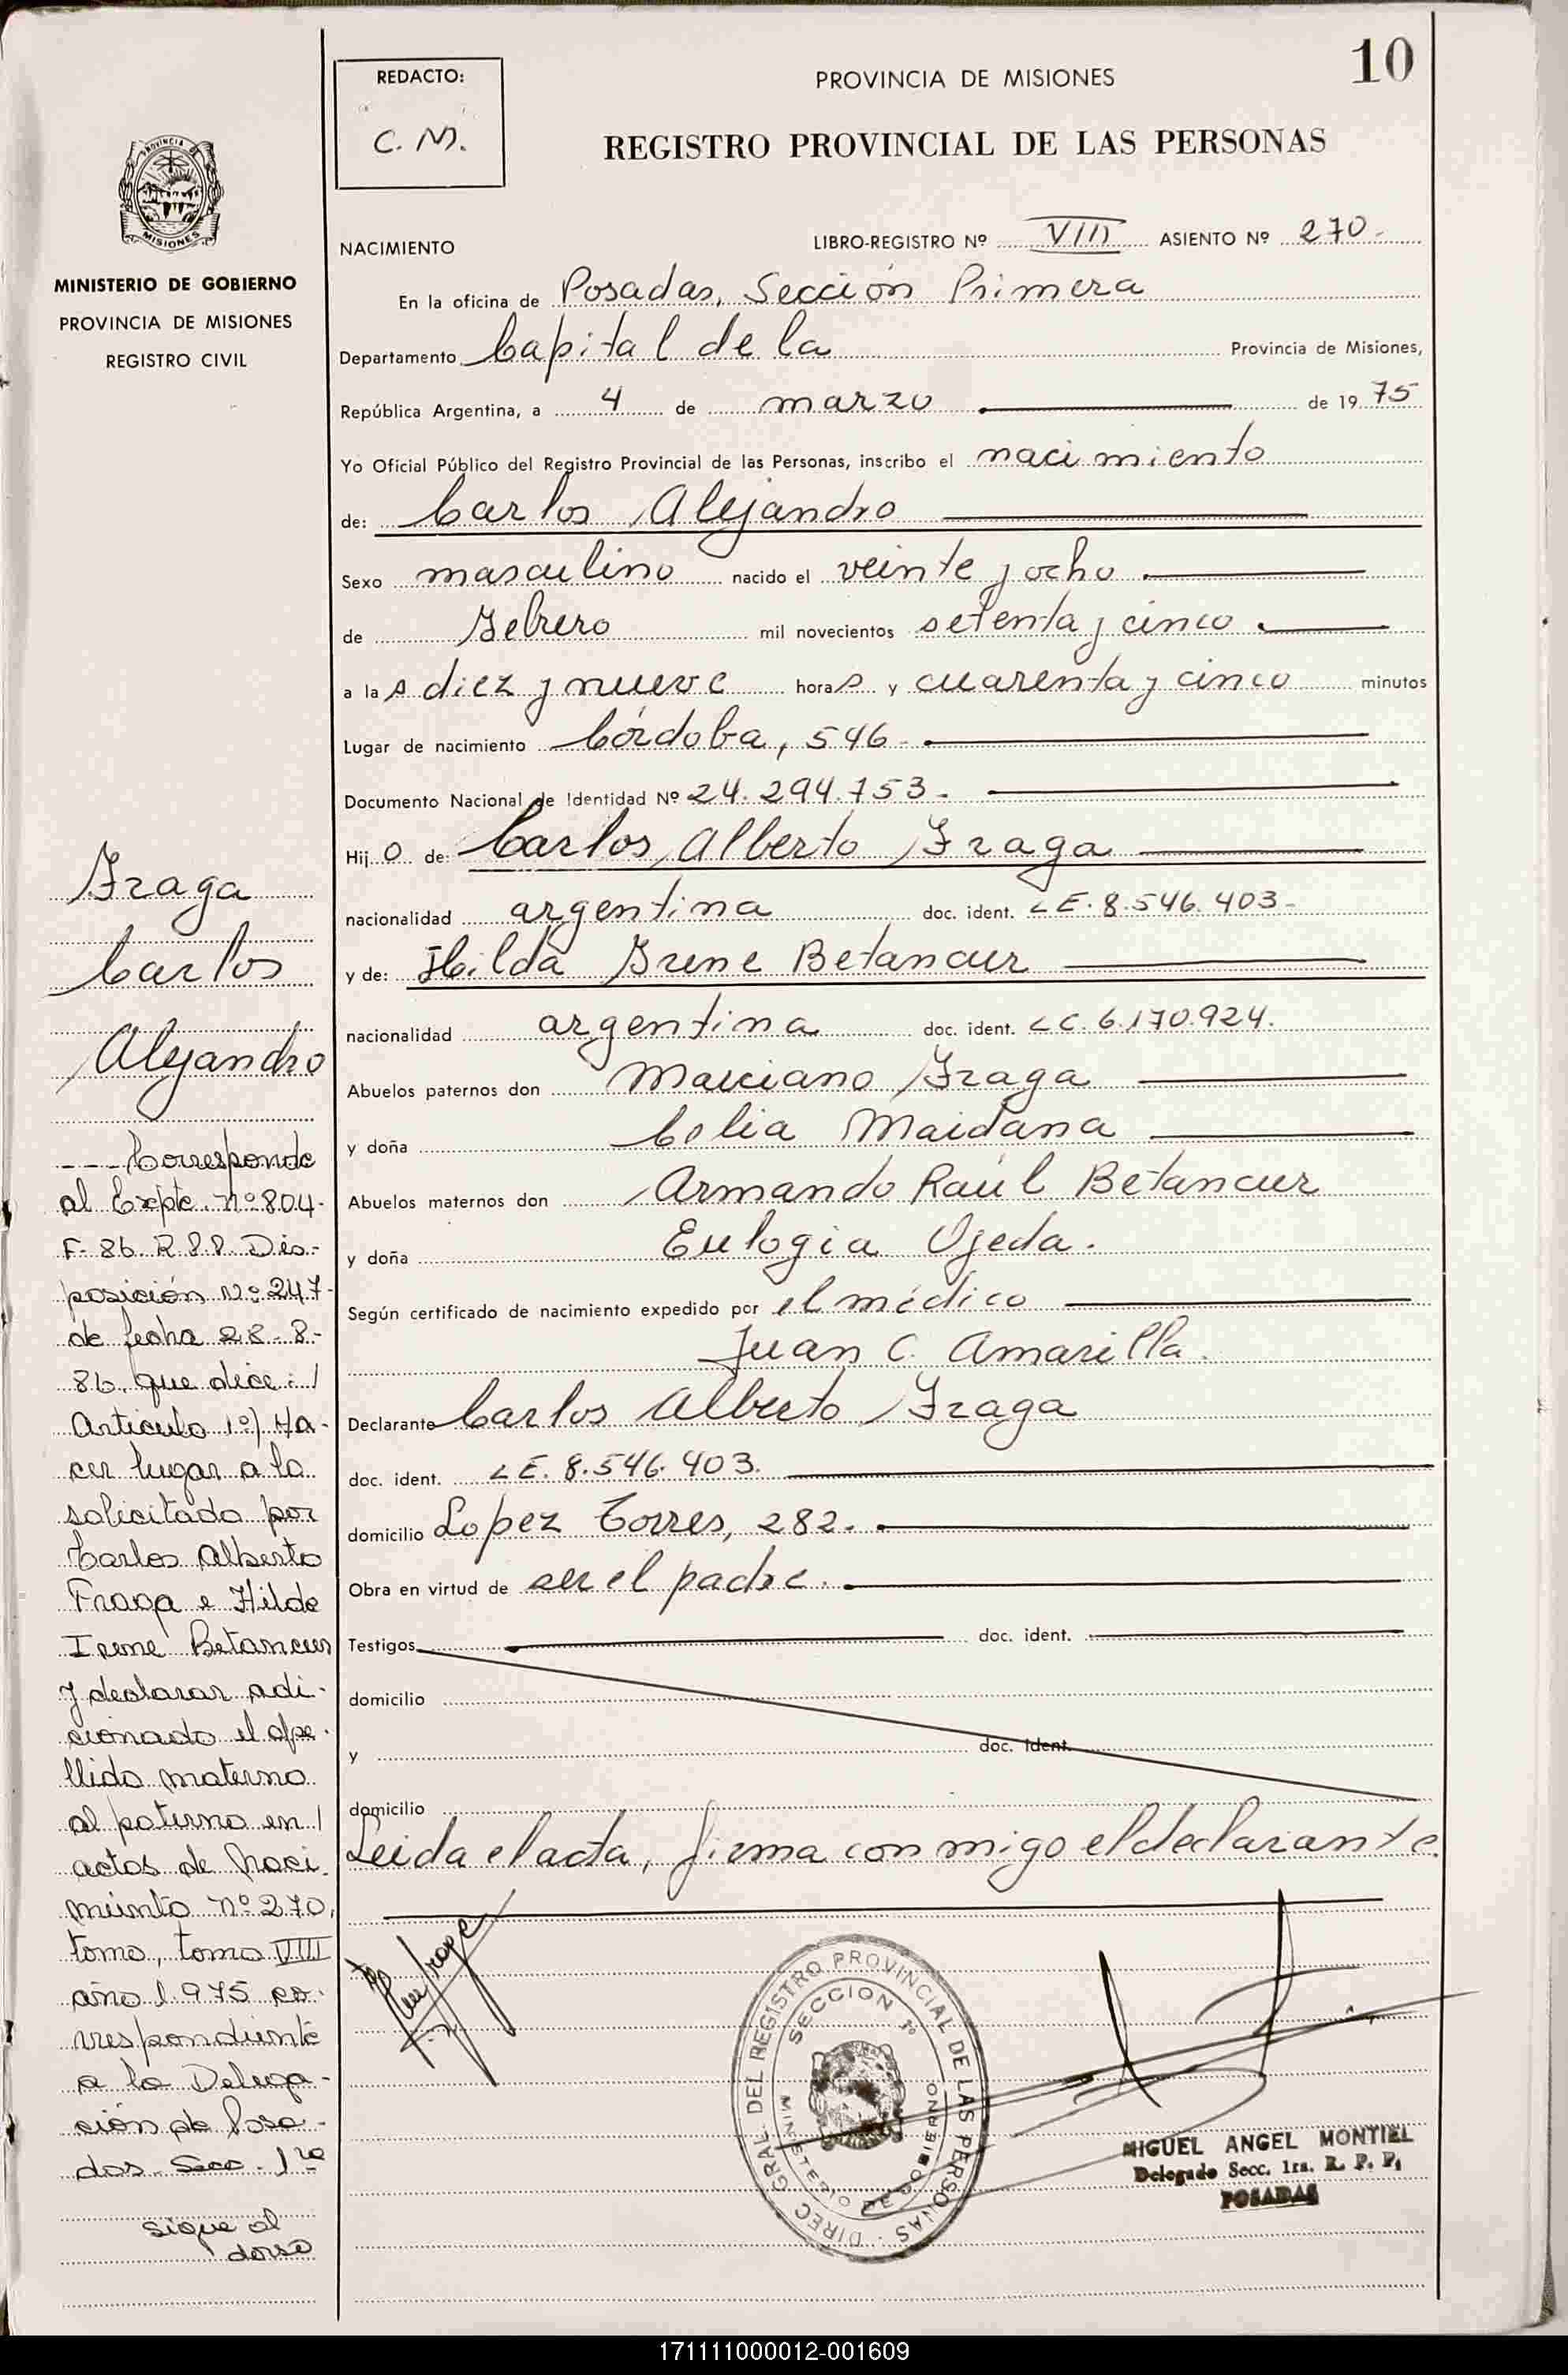 10
REDACTO:
C. M.
PROVINCIA DE MISIONES
REGISTRO PROVINCIAL DE LAS PERSONAS
PROVINCIA
MISIONES
MINISTERIO DE GOBIERNO
PROVINCIA DE MISIONES
REGISTRO CIVIL
NACIMIENTO
LIBRO-REGISTRO Nº VIII ASIENTO Nº 270.-
En la oficina de Posadas, Sección Primera
Departamento Capital de la Provincia de Misiones,
República Argentina, a 4 de marzo de 1975
Yo Oficial Público del Registro Provincial de las Personas, inscribo el nacimiento
de: Carlos Alejandro
Sexo masculino nacido el veinte y ocho
de Febrero mil novecientos setenta y cinco
a las diez y nueve horas y cuarenta y cinco minutos
Lugar de nacimiento Córdoba, 546.-
Documento Nacional de Identidad Nº 24.294.753.-
Hijo de: Carlos Alberto Fraga
nacionalidad argentina doc. ident. LE. 8.546.403-
y de: Hilda Irene Betancur
nacionalidad argentina doc. ident. LC. 6.170.924.
Abuelos paternos don Marciano Fraga
y doña Celia Maidana
Abuelos maternos don Armando Raúl Betancur
y doña Eulogia Ojeda.
Según certificado de nacimiento expedido por el médico
Juan C. Amarilla.
Declarante Carlos Alberto Fraga
doc. ident. LE. 8.546.403.
domicilio Lopez Torres, 282.-
Obra en virtud de ser el padre.
Testigos doc. ident.
domicilio
y doc. ident.
domicilio
Leida el acta, firma conmigo el declarante.
Fraga
Carlos
Alejandro
---Corresponde
al Expte. nº 804-
F-86 R.P.P. Dis-
posición Nº 247-
de fecha 28-8-
86, que dice: /
Articulo 1º) Ha-
cer lugar a lo
solicitado por
Carlos Alberto
Fraga e Hilda
Irene Betancur
y declarar adi-
cionado el ape-
llido materno
al paterno en /
actos de Naci-
miento nº 270,
tomo, tomo VIII
año 1.975 co-
rrespondiente
a la Delega-
ción de Posa-
das Secc. 1ra
sigue al
dorso
DIREC. GRAL. DEL REGISTRO PROVINCIAL DE LAS PERSONAS
SECCION 1ª
MINISTERIO DE GOBIERNO
MIGUEL ANGEL MONTIEL
Delegado Secc. 1ra. R. P. P.
POSADAS
171111000012-001609